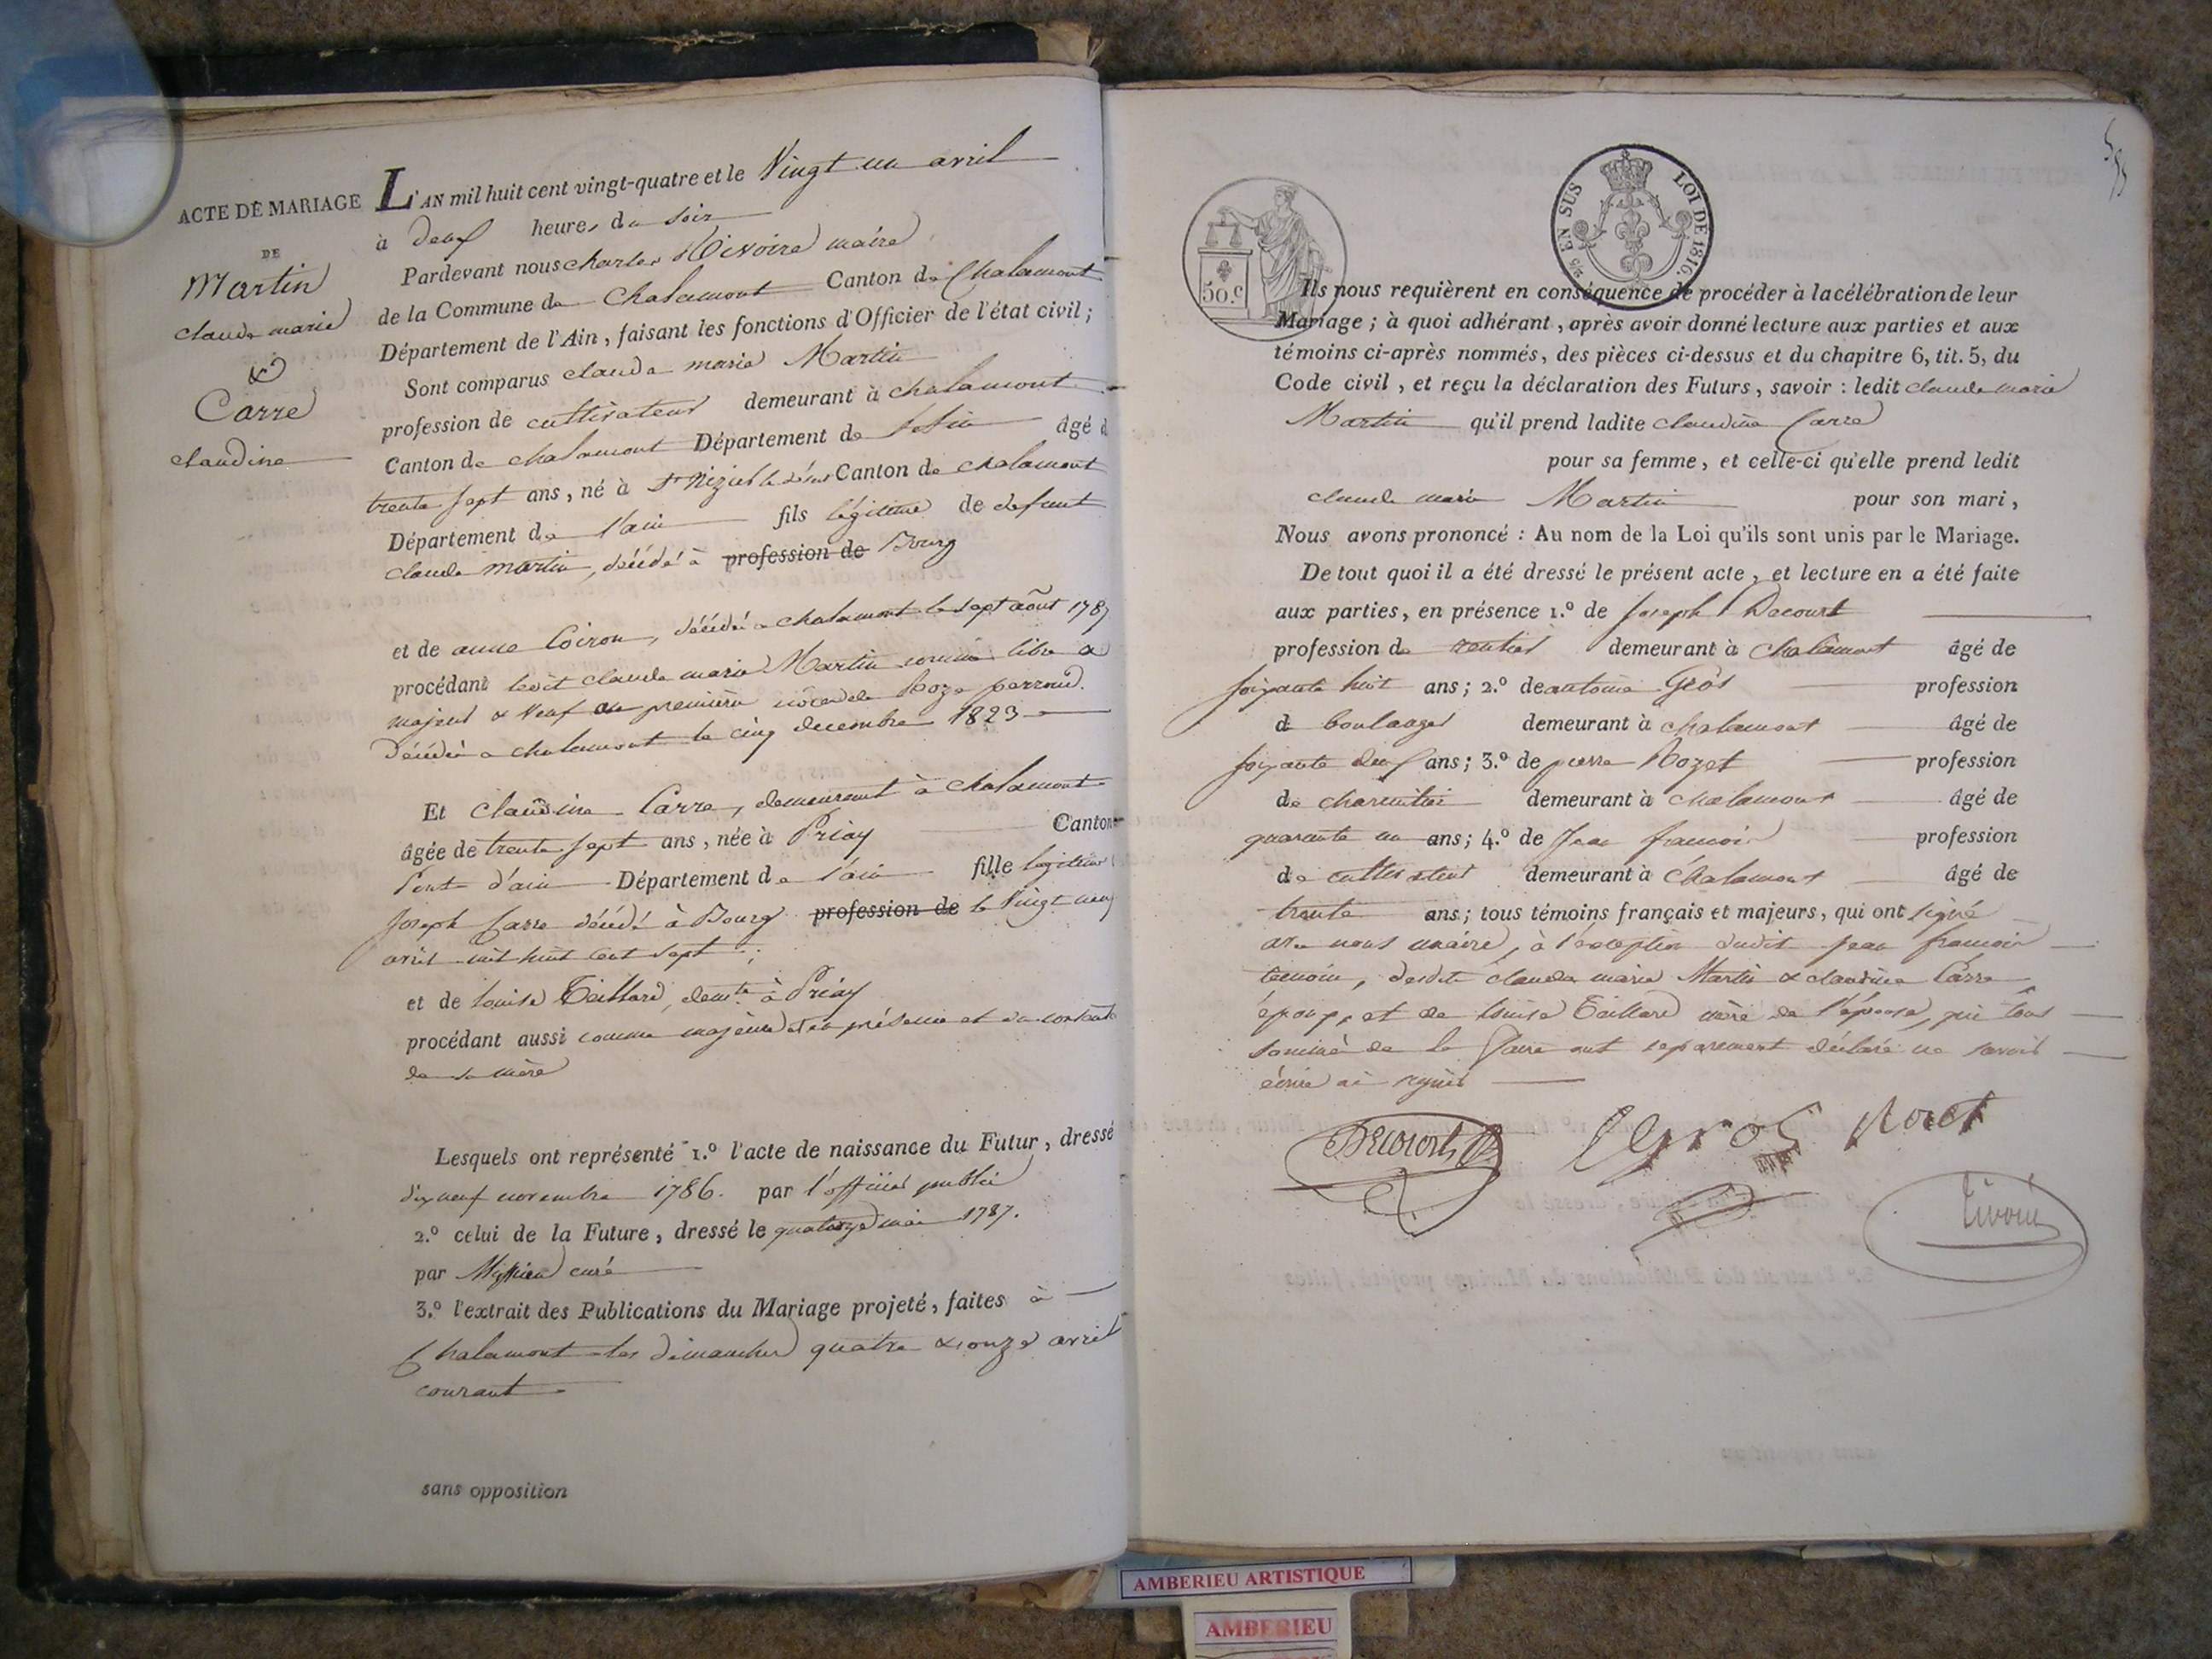 ACTE DE MARIAGE
DE
Martin
claude marie
&
Carre
claudine
L'AN mil huit cent vingt-quatre et le Vingt un avril
à deux heures du soir
Pardevant nous charles Rivoire maire
de la Commune de Chalamont Canton de Chalamont
Département de l'Ain, faisant les fonctions d'Officier de l'état civil;
Sont comparus claude marie Martin
profession de cultivateur demeurant à chalamont
Canton de chalamont Département de l'Ain âgé d
trente sept ans, né à St Nizier le désert Canton de chalamont
Département de l'ain fils légitime de defunt
claude martin, décédé à profession de Bourg
et de anne Coiron, décédée a chalamont le sept août 1787
procédant ledit claude marie Martin comme libre a
majeur & Veuf en première nôce de Roze perroud.
Décédée a chalamont le cinq decembre 1823
Et Claudine Carre, demeurant à chalamont
âgée de trente sept ans, née à Priay Canton
Pont d'ain Département de l'ain fille légitime
Joseph Carre décédé à Bourg profession de le Vingt neuf
avril mil huit cent sept
et de louise Taillard, demte à Priay
procédant aussi comme majeure et en présence et du consentet
de sa mère
Lesquels ont représenté 1.º l'acte de naissance du Futur, dressé
dix neuf novembre 1786. par l'officier public
2.º celui de la Future, dressé le quatorze mai 1787.
par curé
3.º l'extrait des Publications du Mariage projeté, faites à
Chalamont les dimanches quatre & onze avril
courant
sans opposition
50.c
EN SUS LOI DE 1816.
Ils nous requièrent en conséquence de procéder à la célébration de leur
Mariage; à quoi adhérant, après avoir donné lecture aux parties et aux
témoins ci-après nommés, des pièces ci-dessus et du chapitre 6, tit. 5, du
Code civil, et reçu la déclaration des Futurs, savoir: ledit claude marie
Martin qu'il prend ladite claudine Carre
pour sa femme, et celle-ci qu'elle prend ledit
claude marie Martin pour son mari,
Nous avons prononcé: Au nom de la Loi qu'ils sont unis par le Mariage.
De tout quoi il a été dressé le présent acte, et lecture en a été faite
aux parties, en présence 1.º de Joseph Decourt
profession de rentier demeurant à Chalamont âgé de
soixante huit ans; 2.º de antoine Gros profession
de boulanger demeurant à chalamont âgé de
soixante deux ans; 3.º de pierre Rozet profession
de charcutier demeurant à chalamont âgé de
quarante un ans; 4.º de Jean francois profession
de cultivateur demeurant à Chalamont âgé de
trente ans; tous témoins français et majeurs, qui ont signé
avec nous maire, à l'exception dudit jean francois
temoin, desdits claude marie Martin & claudine Carre
époux, et de louise Taillard mère de l'épouse, qui tous
sommé de le faire ont separement déclaré ne savoir
écrire ni signer
Decourt
Gros
Rozet
Rivoire
AMBERIEU ARTISTIQUE
AMBERIEU